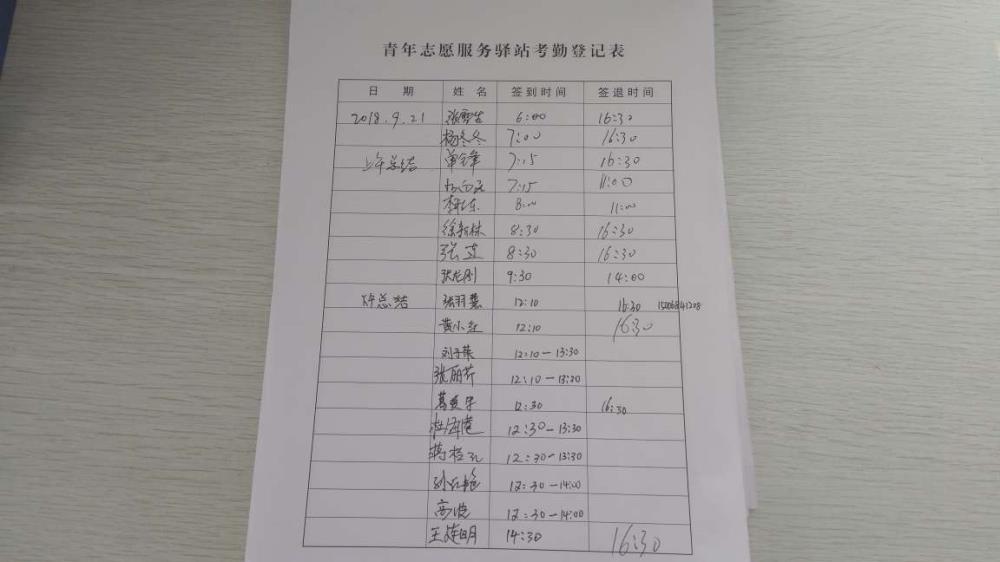 青年志愿服务驿站考勤登记表
日 期 姓 名 签到时间 签退时间
2018.9.21 张 6:00 16:30
杨冬冬 7:00 16:30
上午总结 单 7:15 16:30
7:15 11:00
李 东 8:00 11:00
徐新林 8:30 16:30
张莲 8:30 16:30
张龙刚 9:30 14:00
下午总结 张羽慧 12:10 16:30
黄小红 12:10 16:30
刘子荣 12:10-13:30
张丽芹 12:10-13:30
葛 12:30 16:30
杜 12:30-13:30
蒋 12:30-13:30
孙红艳 12:30-14:00
高俊 12:30-14:00
王建明 14:30 16:30